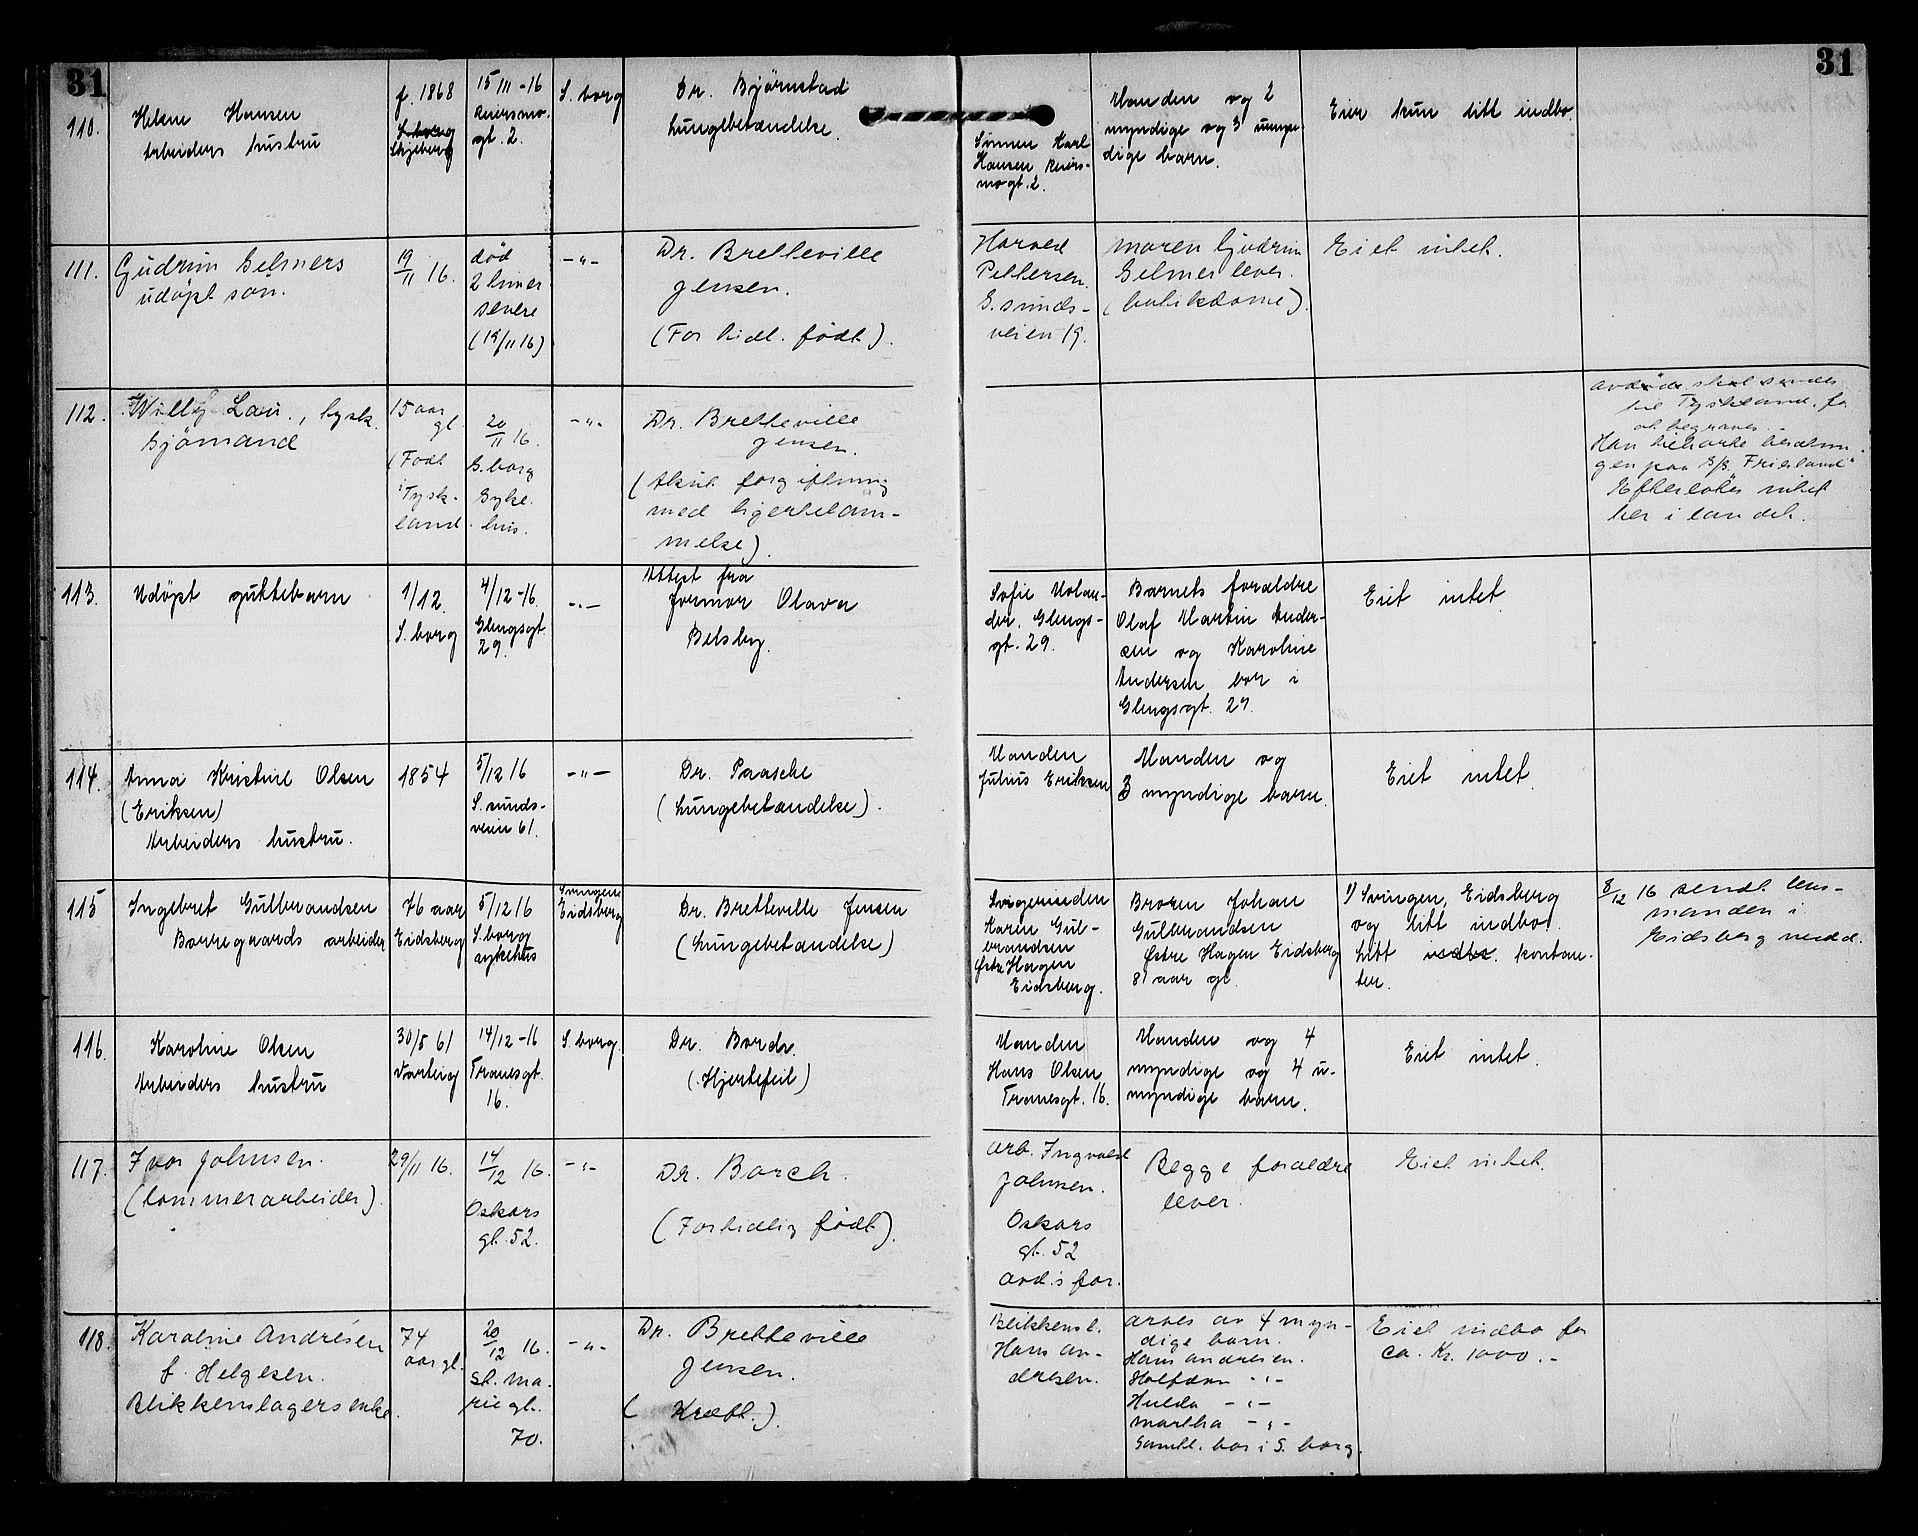 31
31
110.
Helene Hansen
Arbeiders hustru
f. 1868
Skjeberg
15/11-16
Reiersmo.
gt. 2.
S. borg
Dr. Bjørnstad
Lungebetændelse.
Sønnen Karl
Hansen Reiers-
mogt. 2.
Manden og 2
myndige og 3 umyn-
dige barn.
Eier kun litt indbo.
111.
Gudrun Selmers
udøpt søn.
19/11 16.
død
2 timer
senere
(19/11 16)
-"-
Dr. Bretteville
Jensen.
(For tidl. født).
Harald
Pettersen.
S. sunds-
veien 19.
Moren Gudrun
Selmer lever.
(butikdame).
Eiet intet.
112.
Willy Lau, tysk
sjömand
15 aar
gl.
(Født
i Tysk-
land
20/11 16.
S. borg
Syke.
hus.
-"-
Dr. Bretteville
Jensen.
(Akut forgiftning
med hjertelam-
melse).
avdøde skal sendes
til Tyskland for
at begraves.
Han tilhørte besætnin-
gen paa S/S "Friesland"
Efterlater intet
her i landet.
113.
Udøpt guttebarn
1/12.
S. borg
4/12-16.
Glengsgt.
29.
-"-
Attest fra
Jormor Olava
Belsby.
Sofie Molan-
der, Glengs-
gt. 29.
Barnets forældre
Olaf Martin Ander-
sen og Karoline
Andersen bor i
Glengsgt. 29.
Eiet intet.
114.
Anna Kristine Olsen
(Eriksen)
Arbeiders hustru.
1854
5/12 16
S. sunds-
veien 61.
-"-
Dr. Paasche
(Lungebetændelse).
Manden
Julius Eriksen
Manden og
3 myndige barn.
Eiet intet.
115
Ingebret Gulbrandsen
Borregaards arbeider
76 aar
Eidsberg
5/12 16
S. borg
sykehus
Svingen
Eidsberg
Dr. Bretteville Jensen
(Lungebetændelse)
Svigerinden
Karen Gul-
brandsen
Østre Hagen
Eidsberg.
Broren Johan
Gulbrandsen
Østre Hagen Eidsberg
81 aar gl.
1) Svingen, Eidsberg
og litt indbo.
Litt indbo. kontan-
ter.
8/12 16 sendt lens-
manden i
Eidsberg medd.
116.
Karoline Olsen
Arbeiders hustru
30/5 61
Varteig
14/12-16
Tranesgt.
16.
S. borg.
Dr. Borch.
(Hjertefeil)
Manden
Hans Olsen
Tranesgt. 16.
Manden og 4
myndige og 4 u-
myndige barn.
Eiet intet.
117.
Ivar Johnsen.
(tommerarbeider).
29/11 16.
14/12 16.
Oskars
gt. 52.
-"-
Dr. Borch.
(Fortidlig født).
arb. Ingvald
Johnsen.
Oskars
gt. 52
avd.s far.
Begge forældre
lever.
Eiet intet.
118.
Karoline Andresen
f. Helgesen.
Blikkenslagers enke.
74
aar gl.
20/12 16.
St. Ma-
rie gt.
70.
-"-
Dr. Bretteville
Jensen.
(Kræft.)
Blikkensl.
Hans An-
dresen.
arves av 4 myn-
dige barn.
Hans Andresen.
Halfdan -"-
Hulda -"-
Martha -"-
Samtl. bor i S. borg.
Eiet indbo for
ca. Kr. 1000.-